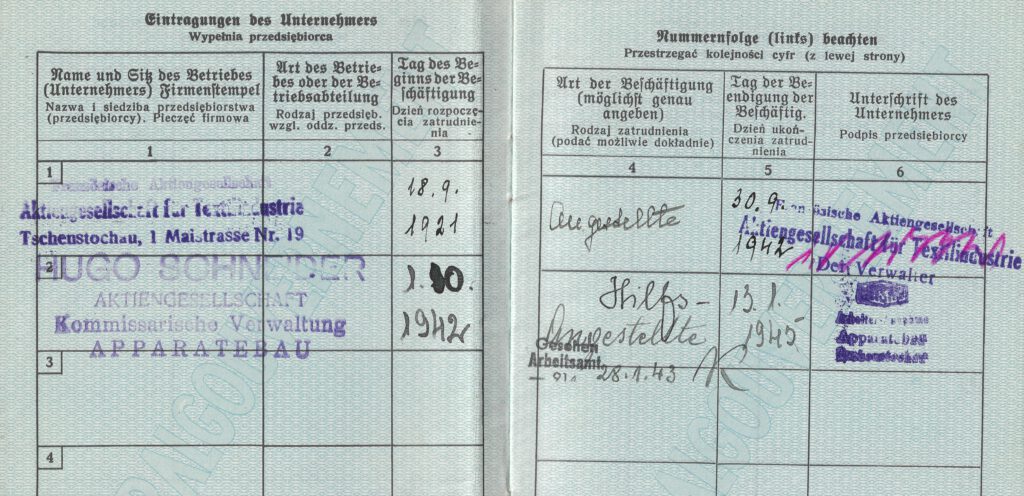 Eintragungen des Unternehmers
Wypełnia przedsiębiorca
Name und Sitz des Betriebes
(Unternehmers) Firmenstempel
Nazwa i siedziba przedsiębiorstwa
(przedsiębiorcy). Pieczęć firmowa
Art des Betrie-
bes oder der Be-
triebsabteilung
Rodzaj przedsięb.
wzgl. oddz. przeds.
Tag des Be-
ginns der Be-
schäftigung
Dzień rozpoczę-
cia zatrudnie-
nia
1
2
3
1
Französische Aktiengesellschaft
Aktiengesellschaft für Textilindustrie
Tschenstochau, 1 Maistrasse Nr. 19
18.9.
1921
2
HUGO SCHNEIDER
AKTIENGESELLSCHAFT
Kommissarische Verwaltung
APPARATEBAU
1.10.
1942
3
4
Nummernfolge (links) beachten
Przestrzegać kolejności cyfr (z lewej strony)
Art der Beschäftigung
(möglichst genau
angeben)
Rodzaj zatrudnienia
(podać możliwie dokładnie)
Tag der Be-
endigung der
Beschäftig.
Dzień ukoń-
czenia zatrud-
nienia
Unterschrift des
Unternehmers
Podpis przedsiębiorcy
4
5
6
Angestellte
30.9.
1942
Französische Aktiengesellschaft
Aktiengesellschaft für Textilindustrie
Der Verwalter
Hilfs-
Angestellte
13.1.
1945
Apparatebau
Gesehen
Arbeitsamt
28.1.43